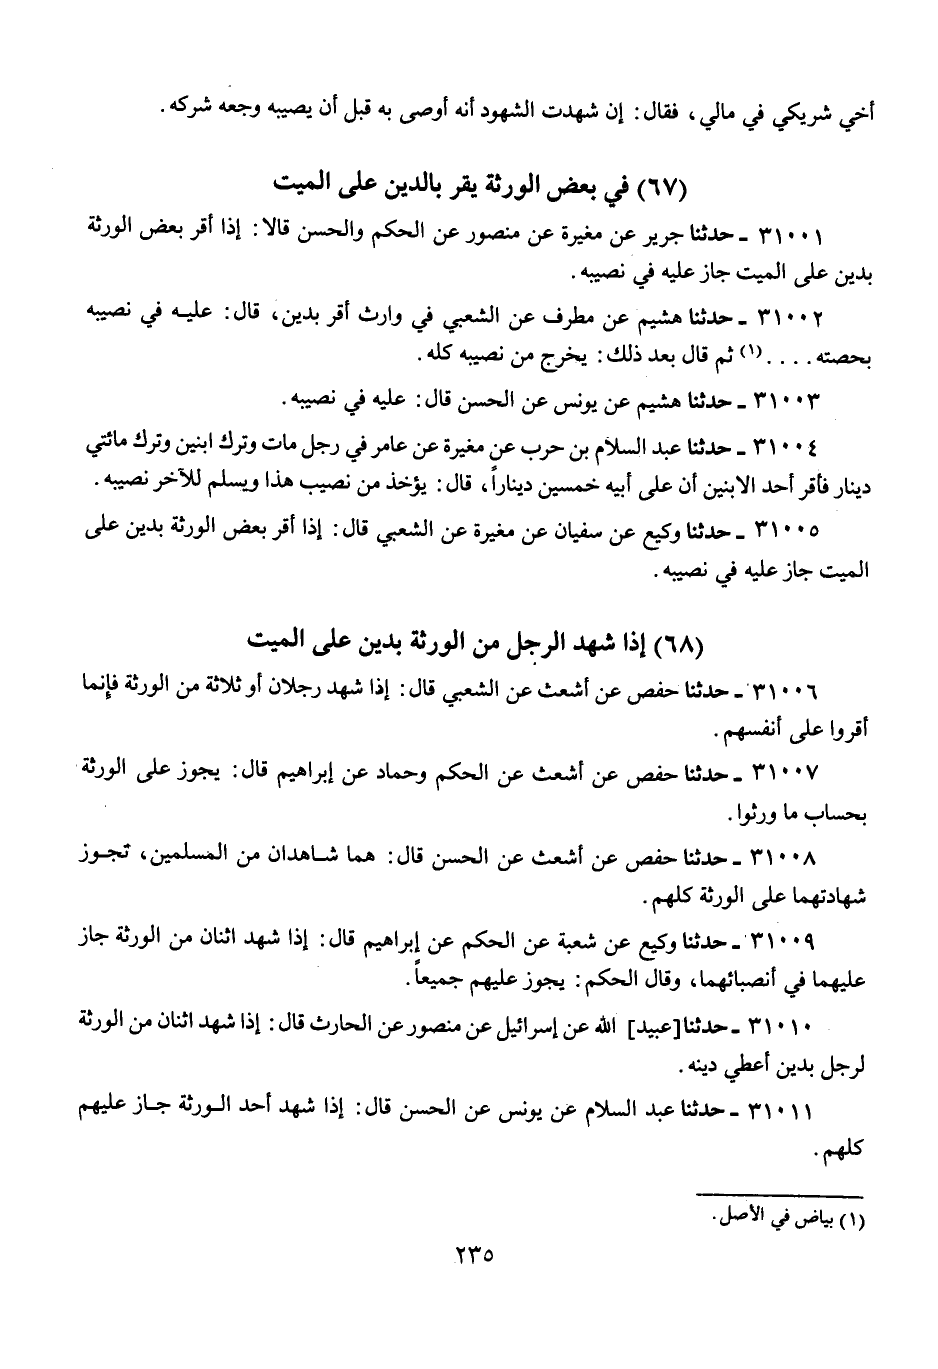 أخي شريكي في مالي، فقال: إن شهدت الشهود أنه أوصى به قبل أن يصيبه وجعه شركه.
(٦٧) في بعض الورثة يقر بالدين على الميت
٣١٠٠١ ـ حدثنا جرير عن مغيرة عن منصور عن الحكم والحسن قالا: إذا أقر بعض الورثة
بدين على الميت جاز عليه في نصيبه.
٣١٠٠٢ ـ حدثنا هشيم عن مطرف عن الشعبي في وارث أقر بدين، قال: عليه في نصيبه
بحصته ....(١) ثم قال بعد ذلك: يخرج من نصيبه كله.
٣١٠٠٣ ـ حدثنا هشيم عن يونس عن الحسن قال: عليه في نصيبه.
٣١٠٠٤ ـ حدثنا عبد السلام بن حرب عن مغيرة عن عامر في رجل مات وترك ابنين وترك مائتي
دينار فأقر أحد الابنين أن على أبيه خمسين ديناراً، قال: يؤخذ من نصيب هذا ويسلم للآخر نصيبه.
٣١٠٠٥ ـ حدثنا وكيع عن سفيان عن مغيرة عن الشعبي قال: إذا أقر بعض الورثة بدين على
الميت جاز عليه في نصيبه.
(٦٨) إذا شهد الرجل من الورثة بدين على الميت
٣١٠٠٦ ـ حدثنا حفص عن أشعث عن الشعبي قال: إذا شهد رجلان أو ثلاثة من الورثة فإنما
أقروا على أنفسهم.
٣١٠٠٧ ـ حدثنا حفص عن أشعث عن الحكم وحماد عن إبراهيم قال: يجوز على الورثة
بحساب ما ورثوا.
٣١٠٠٨ ـ حدثنا حفص عن أشعث عن الحسن قال: هما شاهدان من المسلمين، تجوز
شهادتهما على الورثة كلهم.
٣١٠٠٩ ـ حدثنا وكيع عن شعبة عن الحكم عن إبراهيم قال: إذا شهد اثنان من الورثة جاز
عليهما في أنصبائهما، وقال الحكم: يجوز عليهم جميعاً.
٣١٠١٠ ـ حدثنا [عبيد] الله عن إسرائيل عن منصور عن الحارث قال: إذا شهد اثنان من الورثة
لرجل بدين أعطي دينه.
٣١٠١١ ـ حدثنا عبد السلام عن يونس عن الحسن قال: إذا شهد أحد الورثة جاز عليهم
كلهم.
(١) بياض في الأصل.
٢٣٥